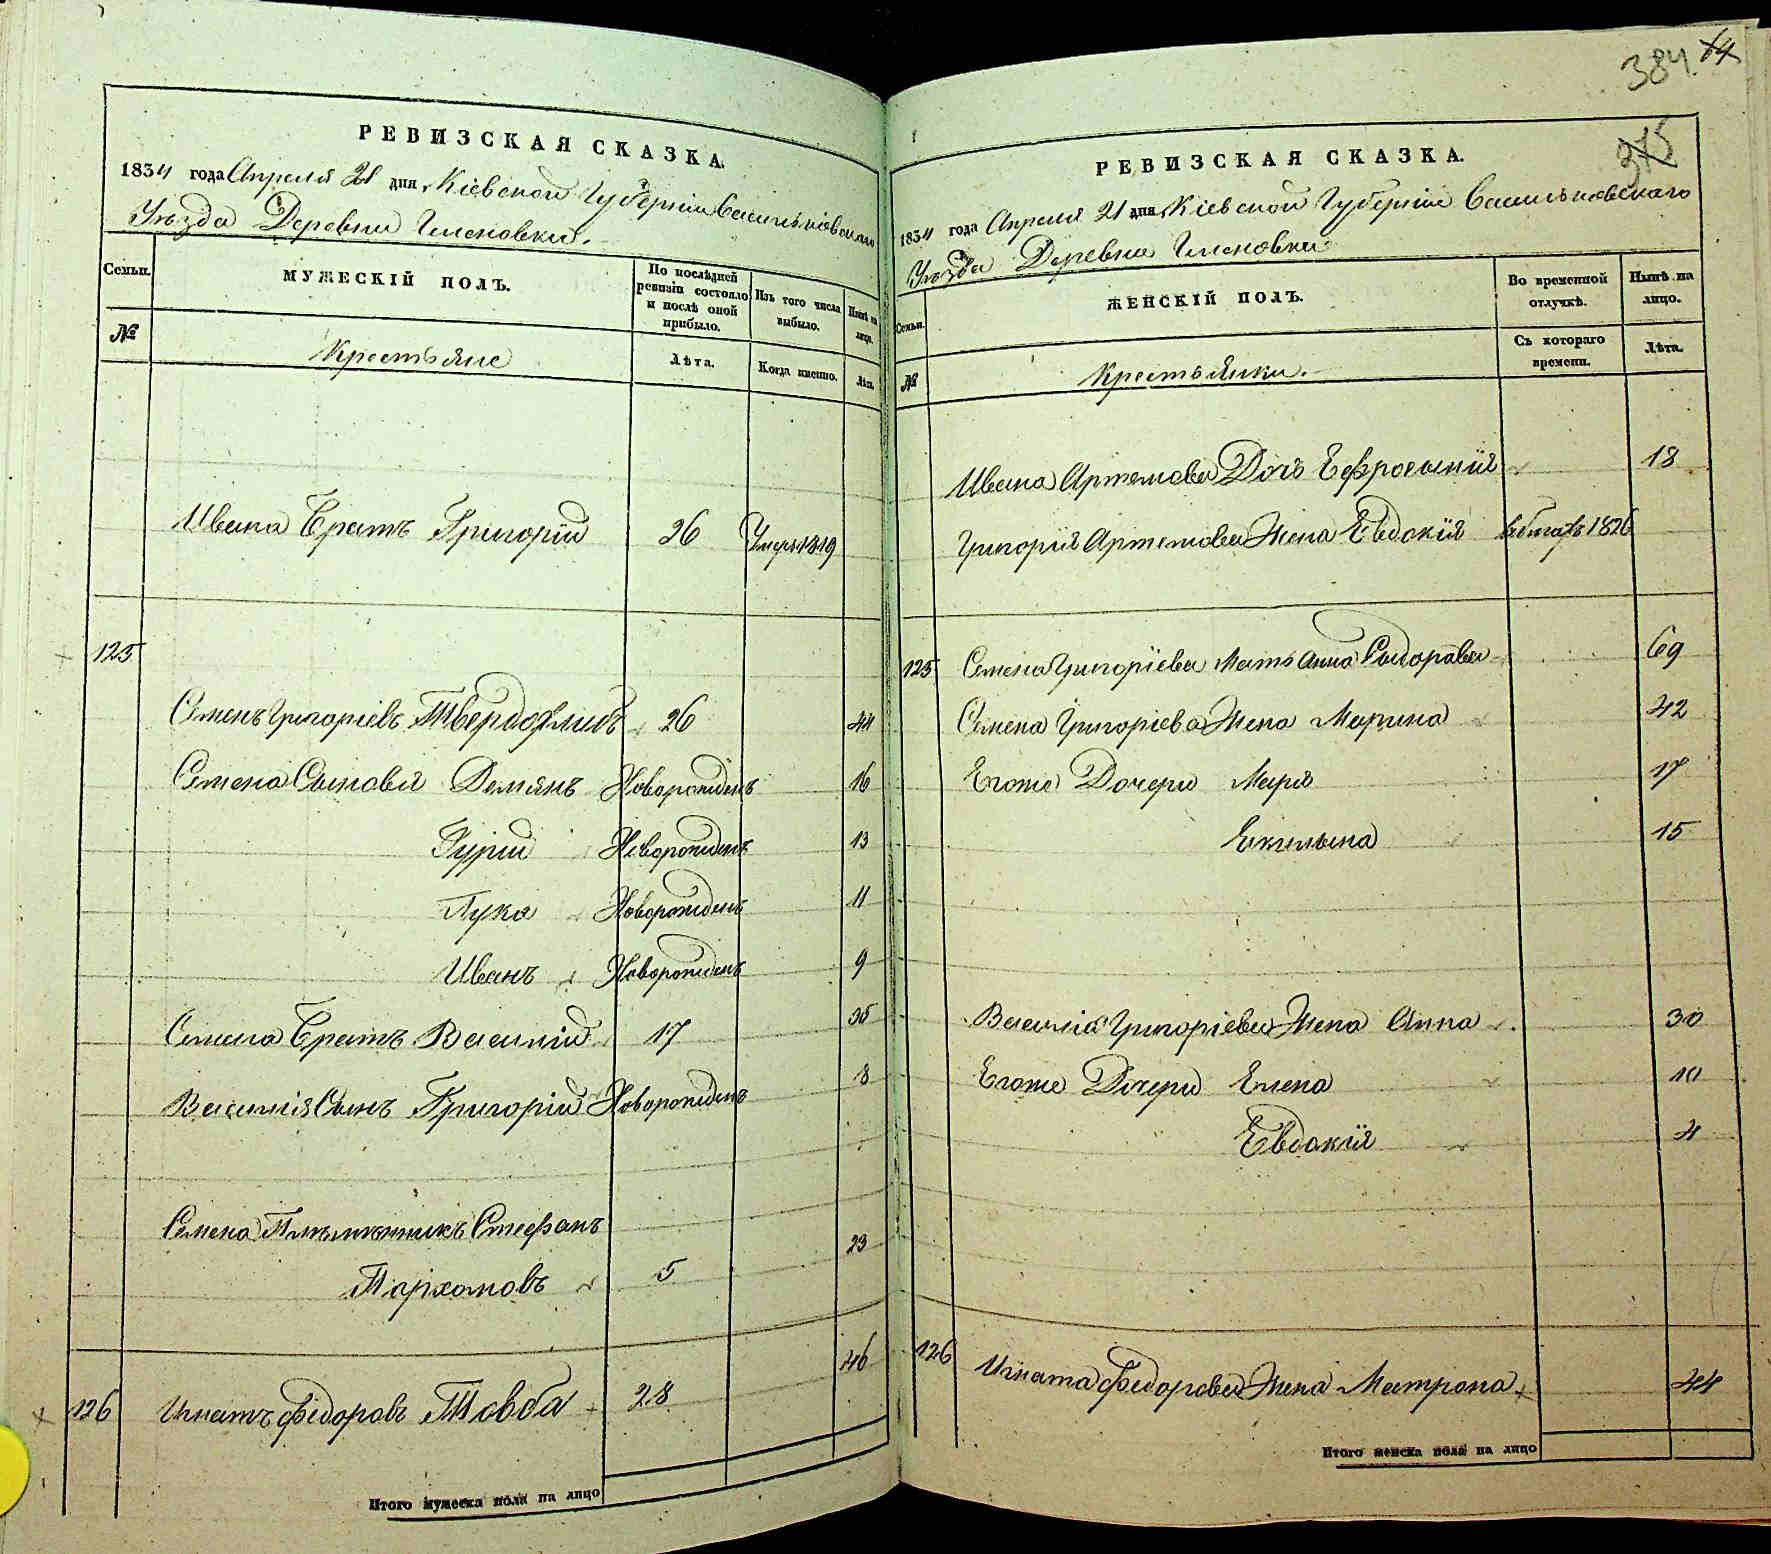 384. 64
375
РЕВИЗСКАЯ СКАЗКА.
1834 года Апреля 21 дня, Кіевской Губерніи Васильковскаго
Уѣзда Деревни
Семьи.
МУЖЕСКІЙ ПОЛЪ.
По послѣдней ревизіи состояло и послѣ оной прибыло.
Изъ того числа выбыло.
Нынѣ на лицо.
№
Крестьяне
Лѣта.
Когда именно.
Лѣта.
Ивана Братъ Григорій 26 Умеръ 1819
125
Семенъ Григоріевъ Твердохлибъ 26 44
Семена Сыновья Демянъ Новорожденъ 16
Гурій Новорожденъ 13
Лука Новорожденъ 11
Иванъ Новорожденъ 9
Семена Братъ Василій 17 35
Василія Сынъ Григорій Новорожденъ 8
Семена Племянникъ Стефанъ
Пархомовъ 5 23
126 Игнатъ Федоровъ Товба 28 46
Итого мужеска пола на лицо
РЕВИЗСКАЯ СКАЗКА.
1834 года Апреля 21 дня, Кіевской Губерніи Васильковскаго
Уѣзда Деревни
Семьи.
ЖЕНСКІЙ ПОЛЪ.
Во временной отлучкѣ.
Нынѣ на лицо.
№
Крестьянки.
Съ котораго времени.
Лѣта.
Ивана Артемова Дочь Ефросинія 18
Григорія Артемова Жена Евдокія 1826
125 Семена Григоріева Мать Анна Сидорова 69
Семена Григоріева Жена Марина 42
Егоже Дочери Марія 17
Екилына 15
Василія Григоріева Жена Анна 30
Егоже Дочери Елена 10
Евдокія 4
126 Игната Федорова Жена Матрона 44
Итого женска пола на лицо